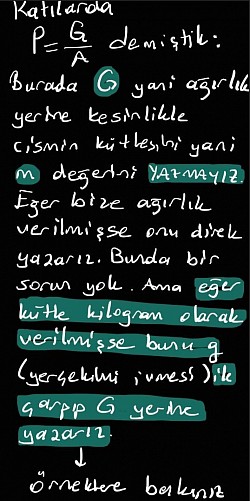 Katılarda
P = G/A demiştik.
Burada G yani ağırlık
yerine kesinlikle
cismin kütlesini yani
m değerini YAZMAYIZ.
Eğer bize ağırlık
verilmişse onu direk
yazarız. Bunda bir
sorun yok. Ama eğer
kütle kilogram olarak
verilmişse bunu g
(yerçekimi ivmesi) ile
çarpıp G yerine
yazarız.
↓
örneklere bakınız